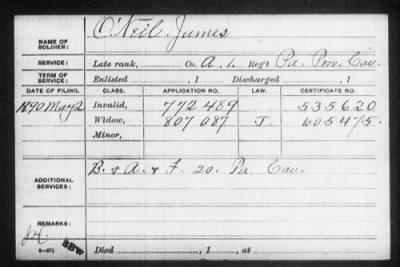 NAME OF SOLDIER: O'Neil, James
SERVICE: Late rank, Co. A, 1. Reg't Pa. Prov. Cav.
TERM OF SERVICE: Enlisted , 1 Discharged , 1
DATE OF FILING. CLASS. APPLICATION NO. LAW. CERTIFICATE NO.
1890 May 2 Invalid, 772 489 535620
Widow, 807 087 J. 605475.
Minor,
ADDITIONAL SERVICES: B. & A. & F. 20. Pa. Cav.
REMARKS:
Died , 1 , at